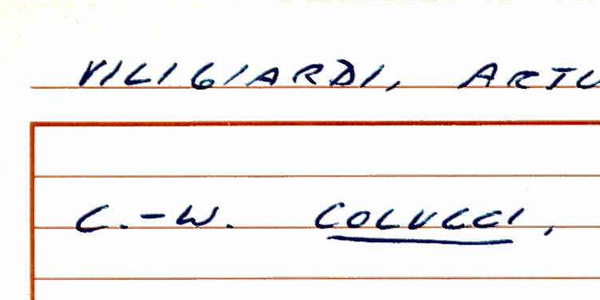 VILIGIARDI, ARTU
C.-W. COLUCCI,